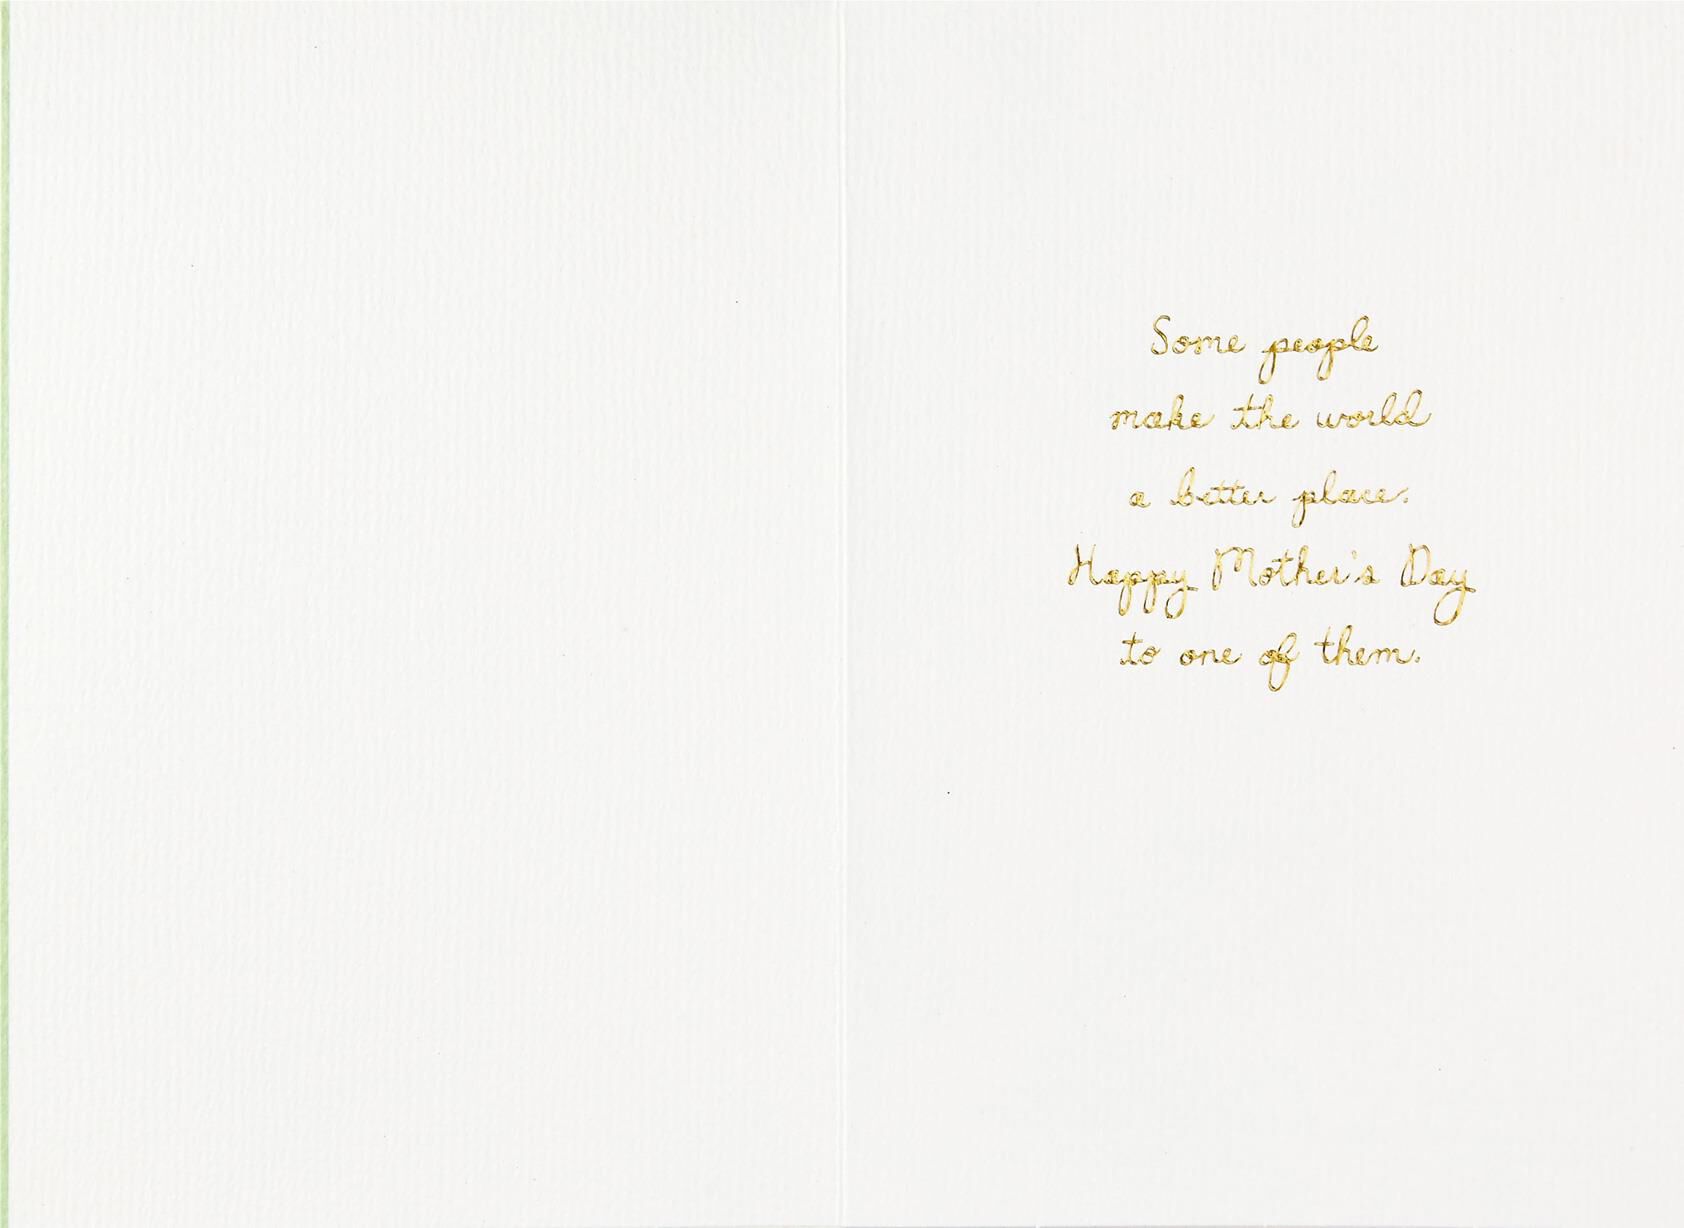 Some people
make the world
a better place.
Happy Mother's Day
to one of them.